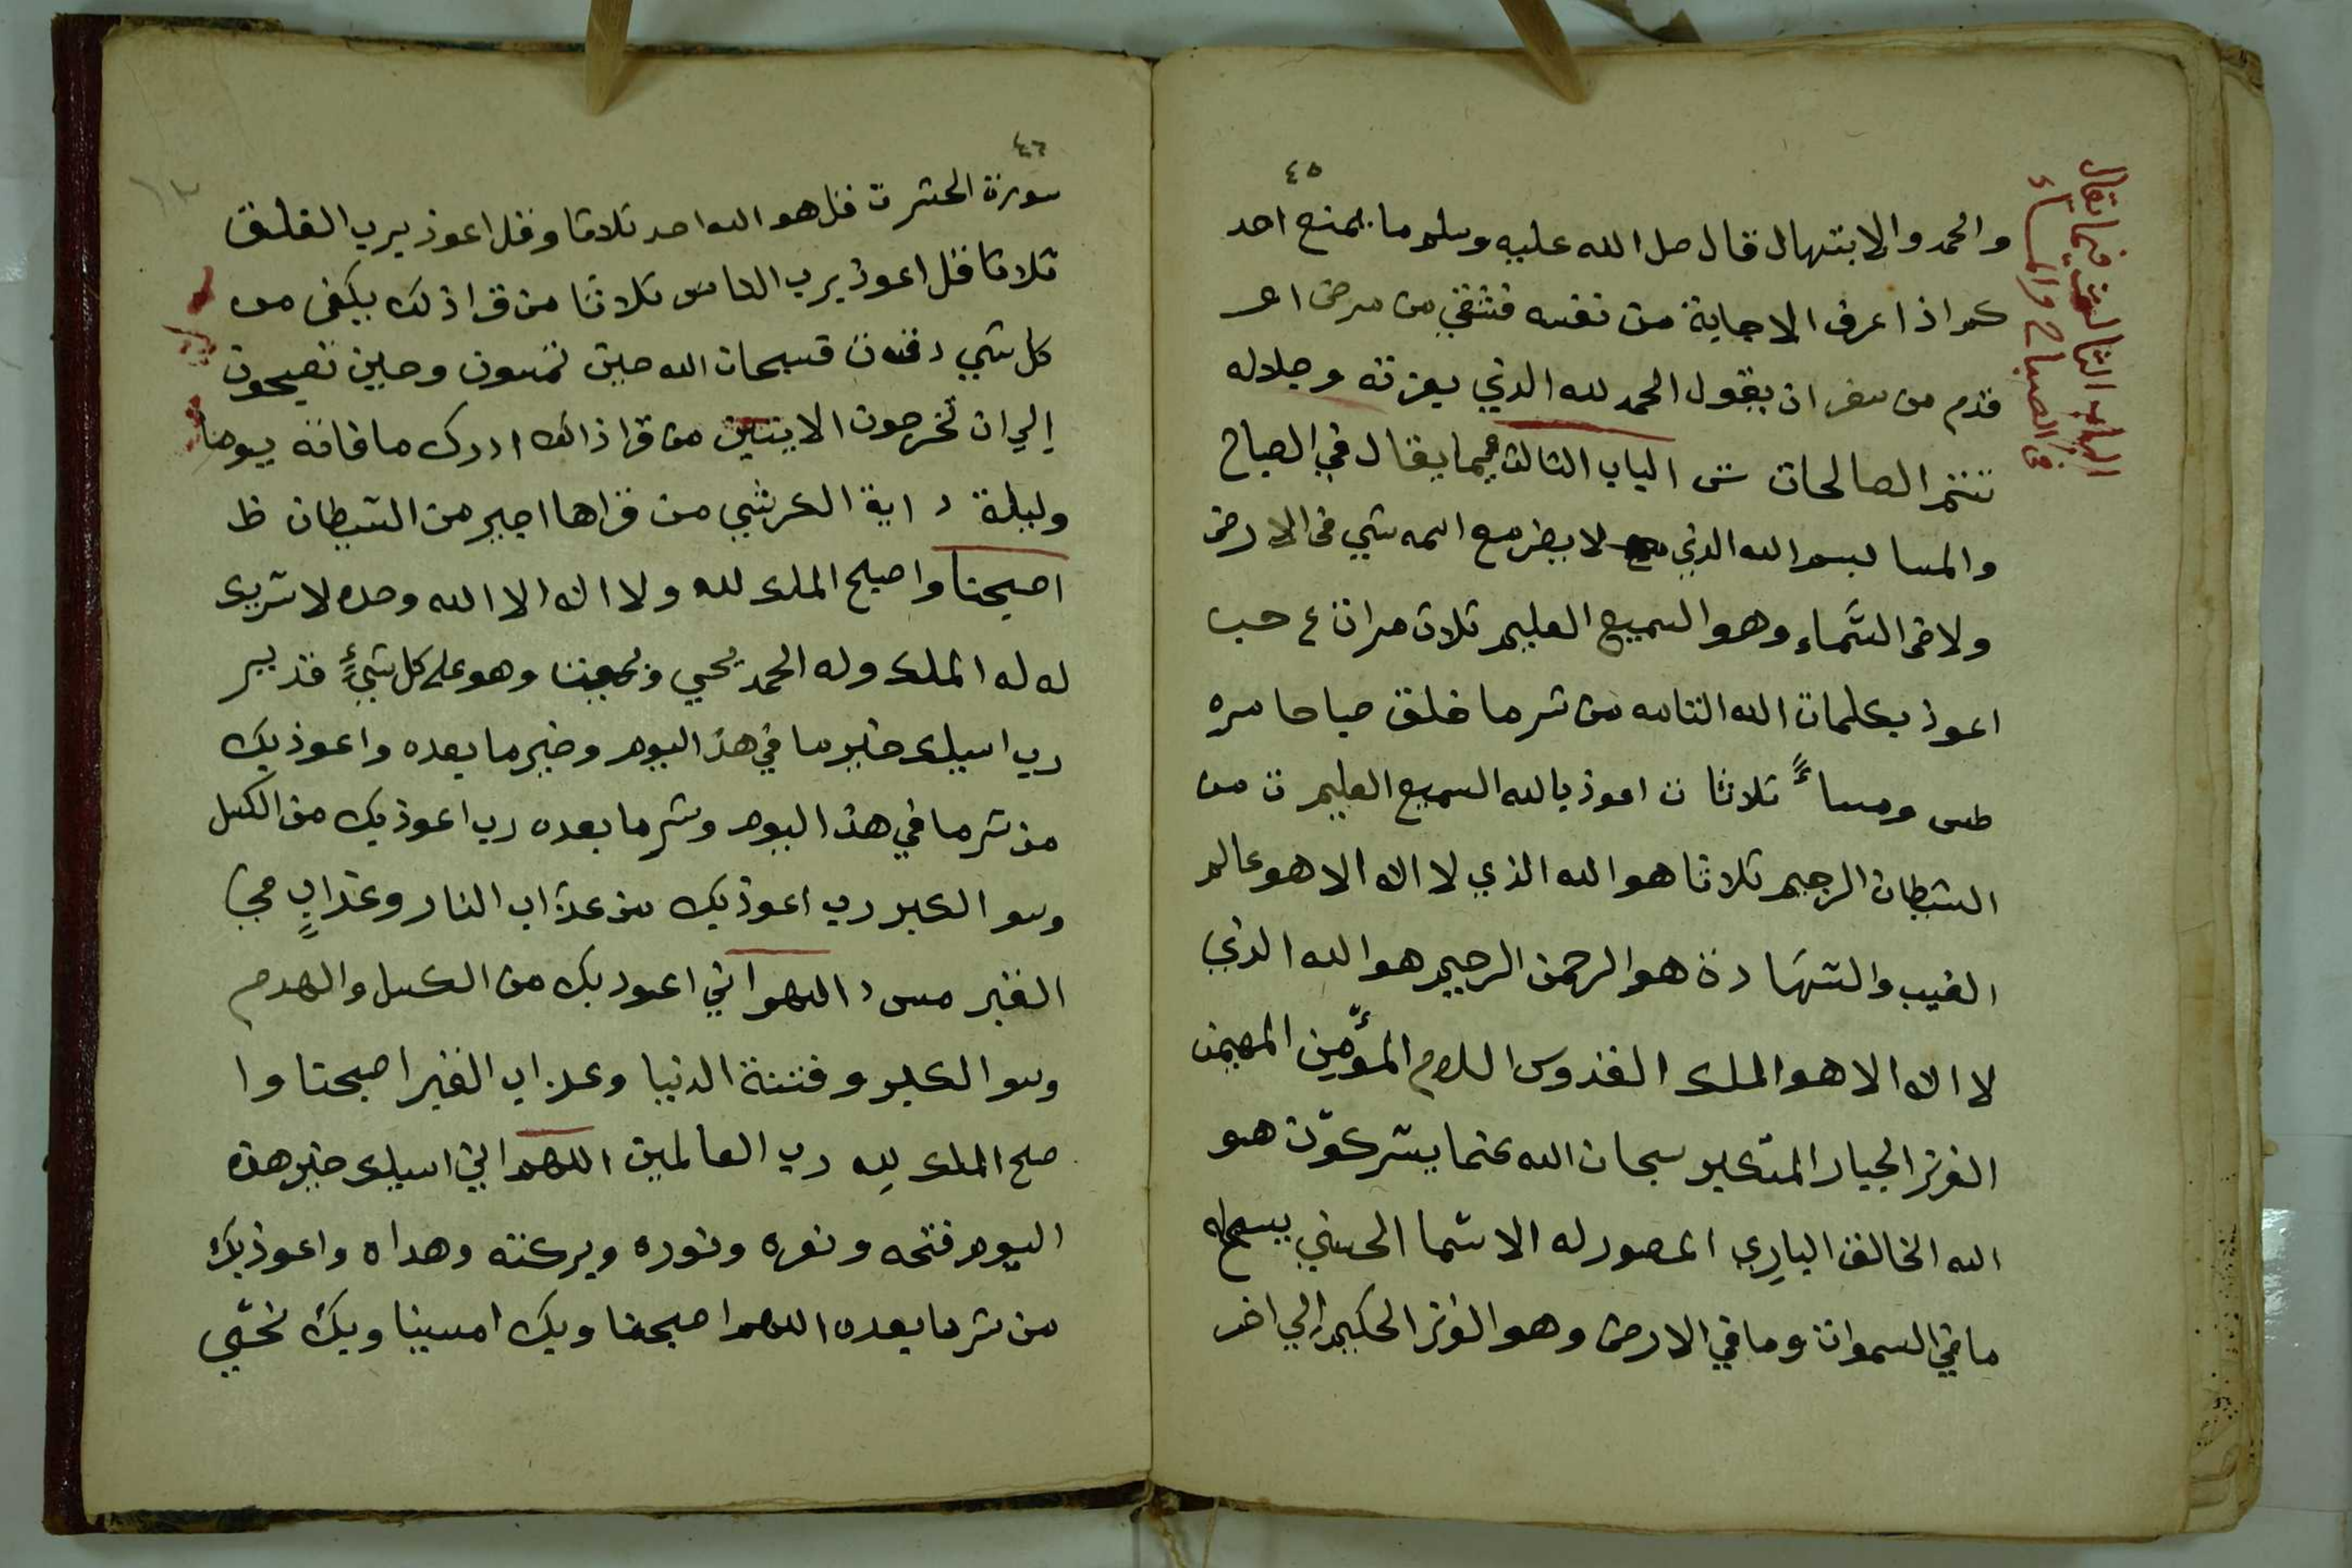 ٤٥
الباب الثالث فيما يقال
في الصباح والمساء
والحمد والابتهال قال صل الله عليه وسلم ما يمنع احد
كم اذا عرف الاجابة من نفسه فشفي من مرض او
قدم من سفر ان يقول الحمد لله الذي بعزته وجلاله
تتم الصالحات الباب الثالث فيما يقال في الصباح
والمسا بسم الله الذي لا يضر مع اسمه شي في الارض
ولا في السَّماء وهو السميع العليم ثلاث مرات ع حب
اعوذ بكلمات الله التامه من شر ما خلق صباحا مره
طس ومساءً ثلاثا ت اعوذ بالله السميع العليم ت من
الشيطان الرجيم ثلاثا هو الله الذي لا اله الا هو عالم
الغيب والشهادة هو الرحمن الرحيم هو الله الذي
لا اله الا هو الملك القدوس السلام المؤمِّن المهيمن
العزيز الجبار المتكبر سبحان الله عما يشركوّن هو
الله الخالق البارِي المصور له الاسما الحسني يسبح له
ما في السموات وما في الارض وهو العزيز الحكيم إلي اخر
٤٦
سورة الحشر ت قل هو الله احد ثلاثا وقل اعوذ برب الفلق
ثلاثا قل اعوذ برب الناس ثلاثا من قرا ذلك يكفى من
كل شي د ت ن فسبحان الله حين تمسون وحين تصبحون
إلي ان تخرجون الايتين من قرا ذالك ادرك ما فاته يوما
وليلة د اية الكرسي من قراها اجير من الشيطان ط
اصبحنا واصبح الملك لله ولا اله الا الله وحده لا شريك
له له الملك وله الحمد يحيي ويميت وهو على كل شيءٍ قدير
رب اسيلك خير ما في هذ اليوم وخير ما بعده واعوذ بك
من شر ما في هذ اليوم وشر ما بعده رب اعوذ بك من الكسل
وسو الكبر رب اعوذ بك من عذاب النار وعذابٍ في
القبر مس د اللهم اني اعوذ بك من الكسل والهدم
وسو الكبر وفتنة الدنيا وعذاب القبر اصبحنا وا
صبح الملك لِله رب العالمين اللهم اني اسيلك خير هذه
اليوم فتحه ونصره ونوره وبركته وهداه واعوذ بك
من شر ما بعده اللهم اصبحنا وبك امسينا وبك نحَيي